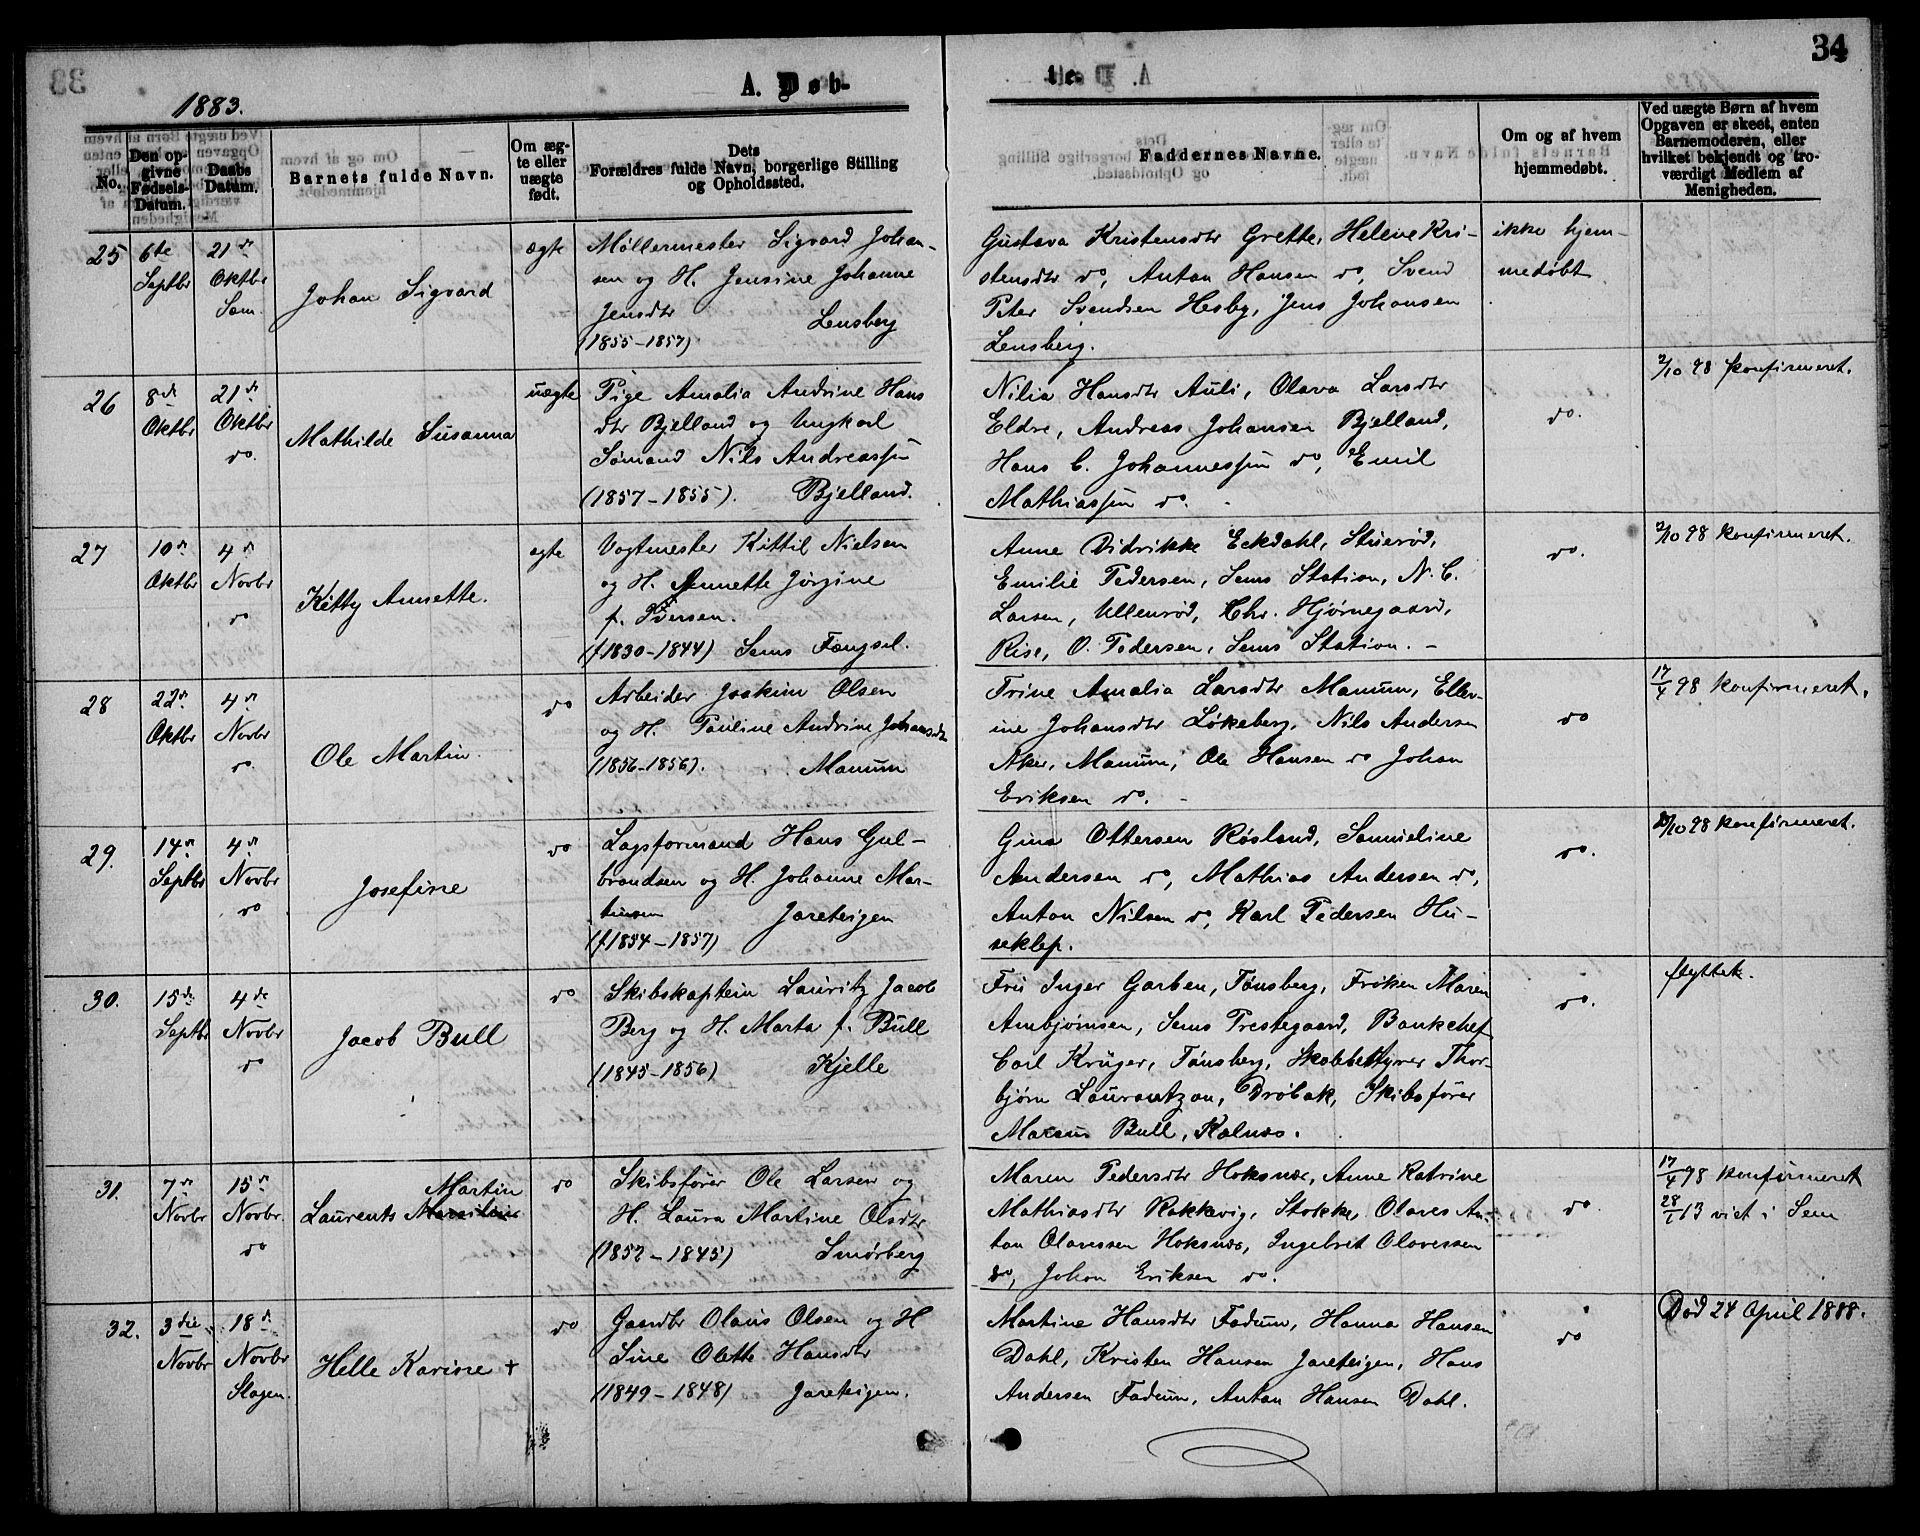 34
A. Døb-
te.
1883.
No.
Den opgivne Fødsels-Datum.
Daabs Datum.
Barnets fulde Navn.
Om ægte eller uægte født.
Dets
Forældres fulde Navn, borgerlige Stilling
og Opholdssted.
Faddernes Navne.
Om og af hvem
hjemmedøbt.
Ved uægte Børn af hvem
Opgaven er skeet, enten
Barnemoderen, eller
hvilket bekjendt og tro-
værdigt Medlem af
Menigheden.
25
6te
Septbr
21de
Oktbr
Sem.
Johan Sigvard
ægte
Møllermester Sigvard Johan-
sen og H. Jensine Johanne
Jensdtr Lensberg
(1855-1857)
Gustava Kristensdtr Grette, Helene Kri-
stensdtr do, Anton Hansen do, Svend
Peter Svendsen Hesby, Jens Johansen
Lensberg.
ikke hjem-
medøbt
26
8de
Oktbr
21de
Oktbr
do.
Mathilde Susanna
uægte
Pige Amalia Andrine Hans
dtr Bjelland og Ungkarl
Sømand Nils Andreassen
(1857-1855). Bjelland.
Nilia Hansdtr Auli, Olava Larsdtr
Eldre, Andreas Johansen Bjelland,
Hans C. Johannessen do, Emil
Mathiassen do.
do.
2/10 98 konfirmeret.
27
10de
Oktbr
4de
Novbr
do
Kitty Annette.
egte
Vogtmester Kittil Nielsen
og H. Annette Jørgine
f. Iversen.
(f1830-1844) Sems Fængsel.
Anne Didrikke Eckdahl, Stuerød,
Emilie Pedersen, Sems Station, N. C.
Larsen, Ullenrød, Chr. Hjørnegaard,
Rise, O. Pedersen, Sems Station. -
do.
2/10 98 konfirmeret.
28
22de
Oktbr
4de
Novbr
do
Ole Martin.
do
Arbeider Joakim Olsen
og H. Pauline Andrine Johansdtr
(1856-1856). Manum
Trine Amalia Larsdtr Manum, Eller-
ine Johansdtr Løkeberg, Nils Andersen
Aker, Manum, Ole Hansen do Johan
Eriksen do. -
do
17/4 98 konfirmeret.
29.
14de
Septbr
4de
Novbr
do
Josefine
do
Lagsformand Hans Gul-
brandsen og H. Johanne Mar-
tinsen Jareteigen
(f1854-1857)
Gina Ottersen Røsland, Samueline
Andersen do, Mathias Andersen do,
Anton Nilsen do, Karl Pedersen Hu-
seklep.
do.
2/10 98 konfirmeret.
30.
15de
Septbr
4de
Novbr
do
Jacob Bull
do
Skibskaptein Lauritz Jacob
Berg og H. Marta f. Bull
(1845-1856) Kjelle
Fru Inger Garben, Tønsberg, Frøken Maren
Ambjørnsen, Sems Prestegaard, Bankchef
Carl Krüger, Tønsberg, Thor-
bjørn Laurantzon, Drøbak, Skibsfører
Marcus Bull, Kalnæs.
do.
flyttet.
31.
7de
Novbr
15de
Novbr.
do
Martin
Laurents
do
Skibsfører Ole Larsen og
H. Laura Martine Olsdtr
(1852-1845) Smørberg
Maren Pedersdtr Hoksnæs, Anne Katrine
Mathiasdtr Rakkevig, Stokke, Olaves An-
ton Olavessen Hoksnæs, Ingebret Olavessen
do, Johan Eriksen do.
do.
17/4 98 konfirmeret
28/1 13 viet i Sem
32.
3die
Novbr
18de
Novbr
Slagen.
Helle Karine +
do
Gaardbr Olaus Olsen og H
Sine Olette Hansdtr
(1849-1848) Jareteigen.
Martine Hansdtr Fadum, Hanna Hansen
Dahl, Kristen Hansen Jareteigen, Hans
Andersen Fadum, Anton Hansen Dahl.
do
Død 24 April 1888.